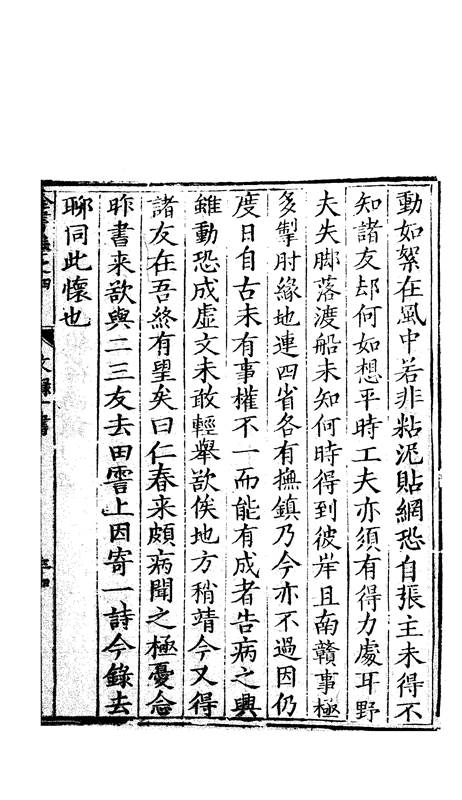 動如絮在風中若非粘泥貼網恐自張主未得不
知諸友却何如想平時工夫亦須有得力處耳野
夫失脚落渡船未知何時得到彼岸且南贛事極
多掣肘緣地連四省各有撫鎮乃今亦不過因仍
度日自古未有事權不一而能有成者告病之興
雖動恐成虛文未敢輕舉欲俟地方稍靖今又得
諸友在吾終有望矣曰仁春來頗病聞之極憂念
昨書来欲與二三友去田霅上因寄一詩今錄去
聊同此懷也
文錄一 書